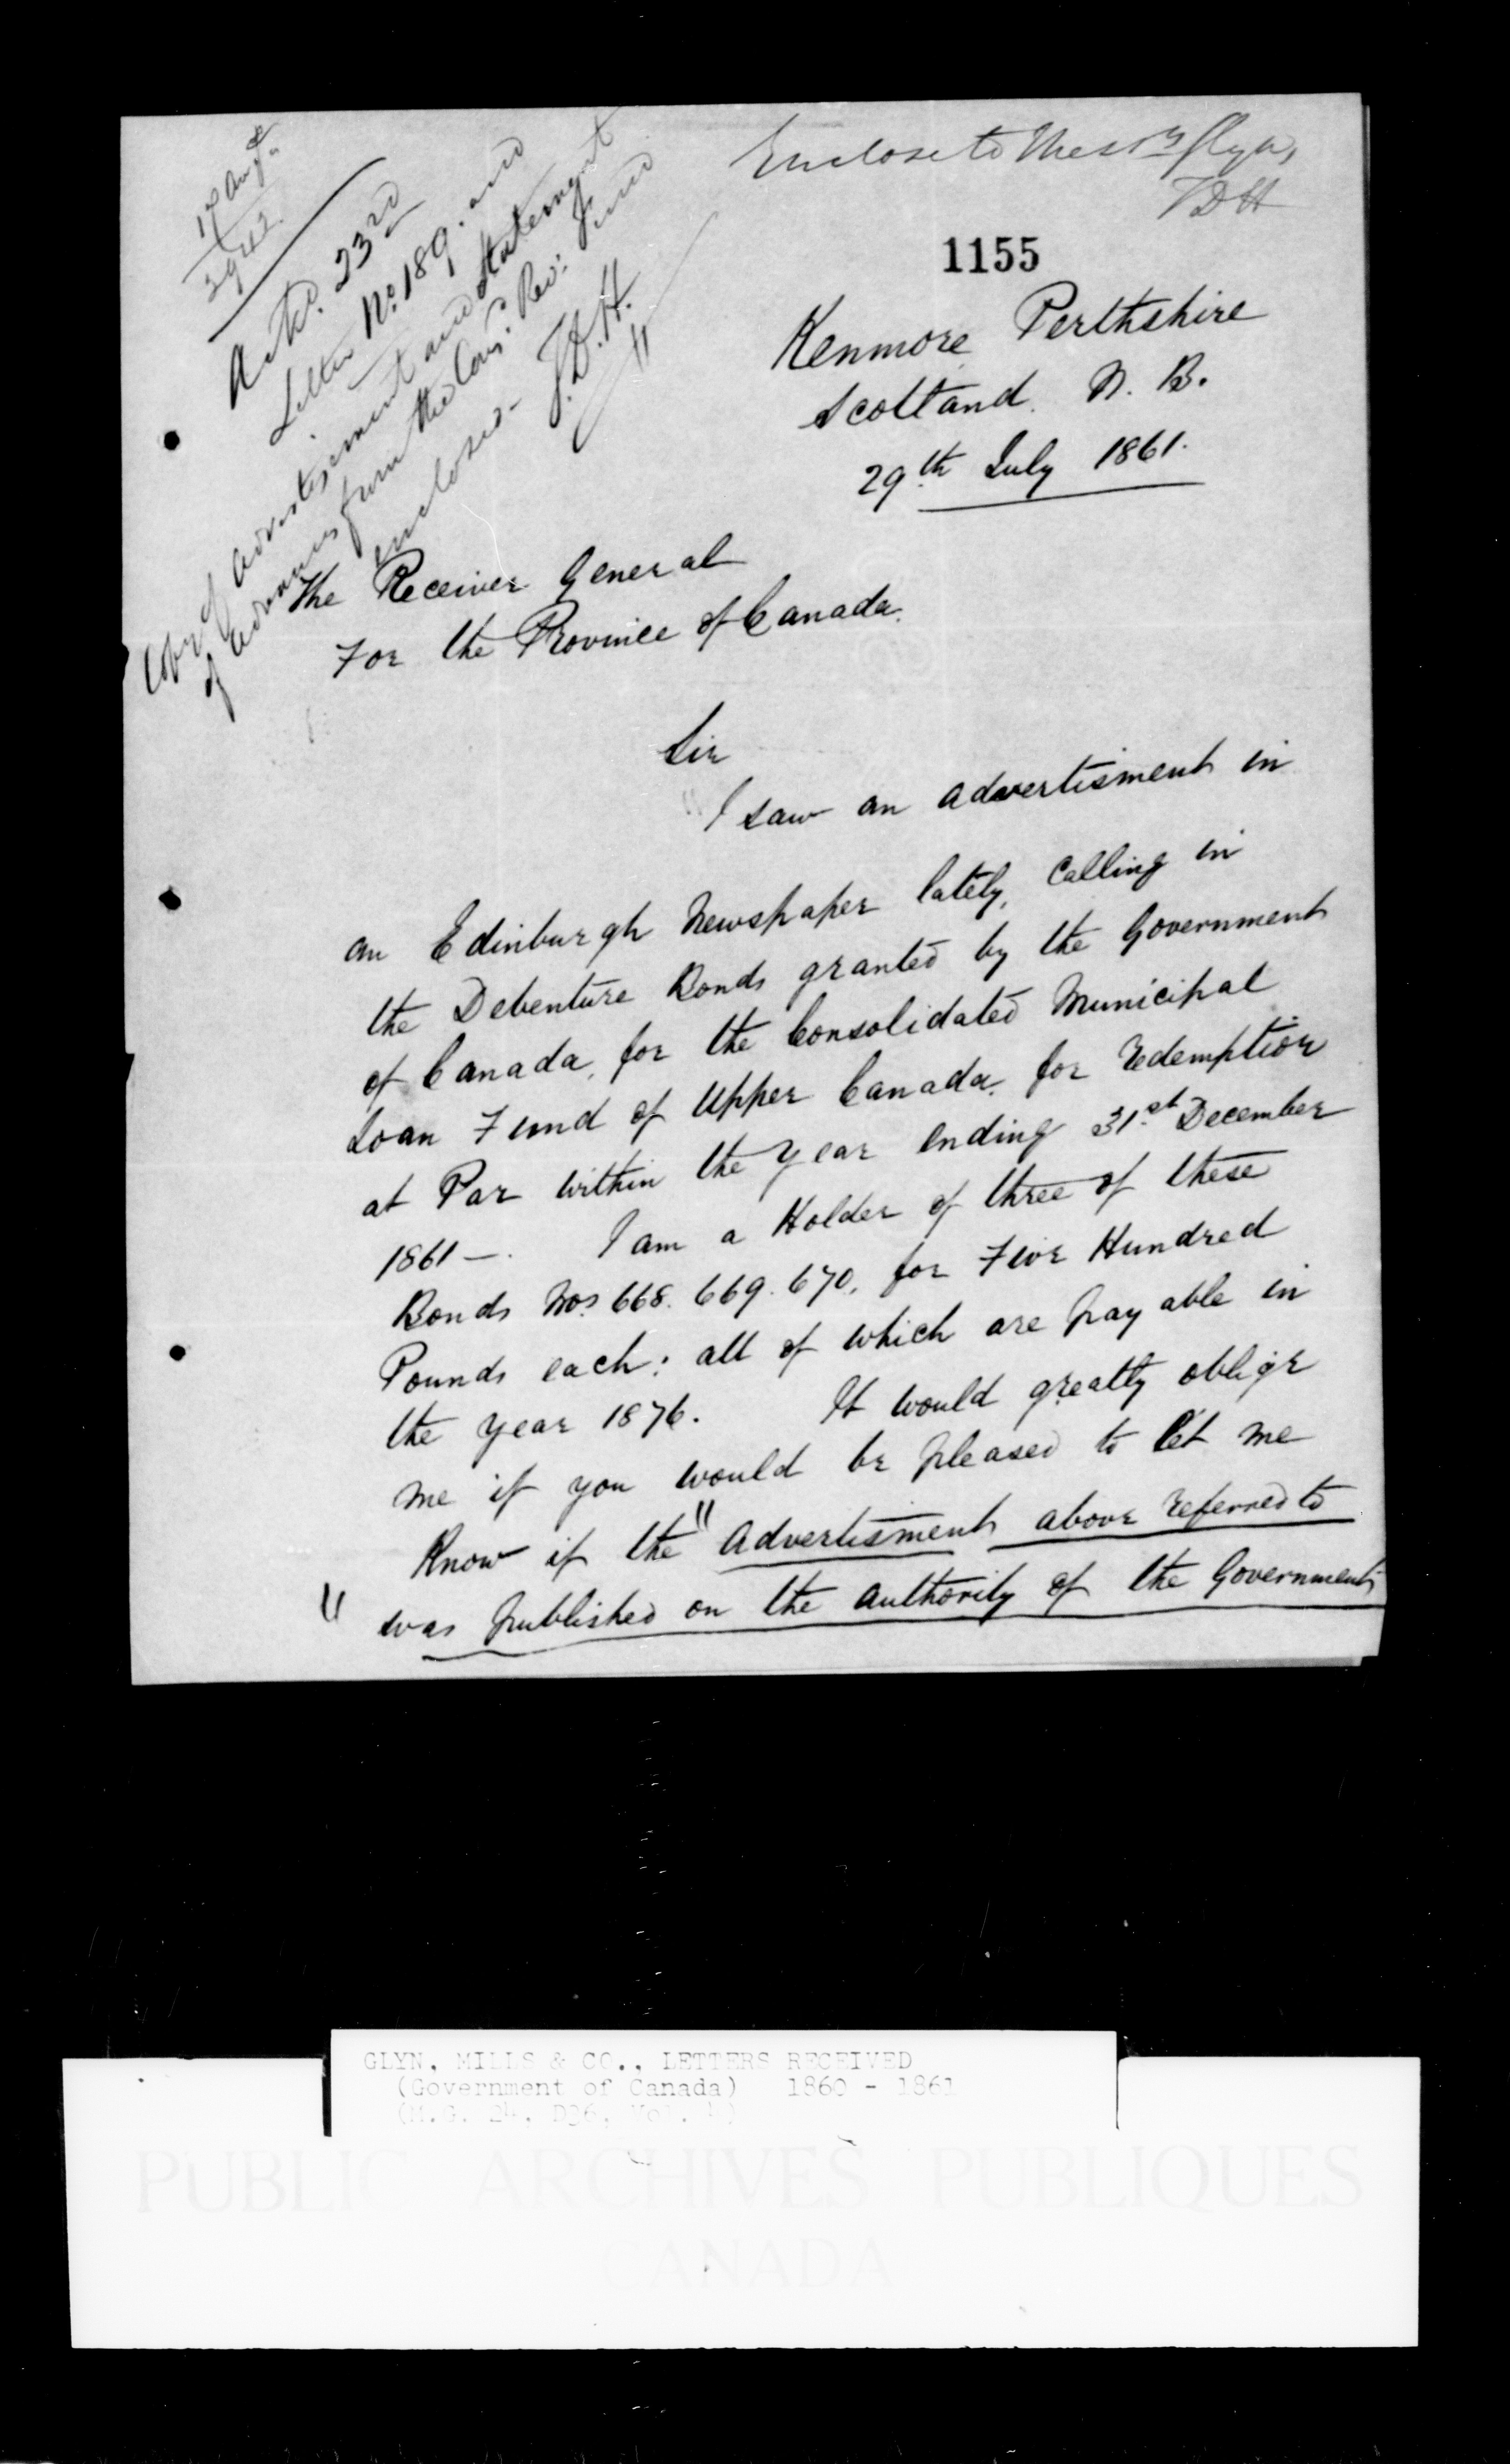 Enclose to Messrs Glyn,
TDH
1155
17 Aug.
3942
Ackd. 23rd
Letter No. 189. and
Copy of Advertisement and Statement
of Advances from the Cons. Rev: Fund
enclosed.
T.D.H.
Kenmore Perthshire
Scotland. N. B.
29th July 1861.
The Receiver General
For the Province of Canada.
Sir
I saw an advertisment in
an Edinburgh Newspaper lately, Calling in
the Debenture Bonds granted by the Government
of Canada, for the Consolidated Municipal
Loan Fund of Upper Canada, for Redemption
at Par within the Year ending 31st December
1861 —. I am a Holder of three of these
Bonds Nos 668. 669. 670, for Five Hundred
Pounds each: all of which are payable in
the year 1876. It would greatly oblige
me if you would be pleased to let me
Know if the "Advertisment above referred to
" was published on the authority of the Government
GLYN, MILLS & CO., LETTERS RECEIVED
(Government of Canada) 1860 - 1861
(M.G. 24, D36, Vol. 4)
PUBLIC ARCHIVES PUBLIQUES
CANADA